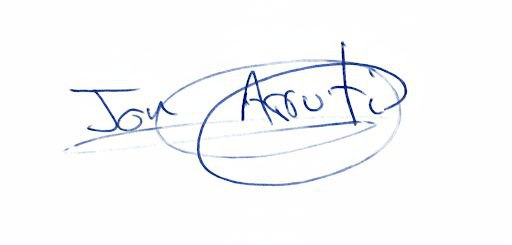 Jon Arruti